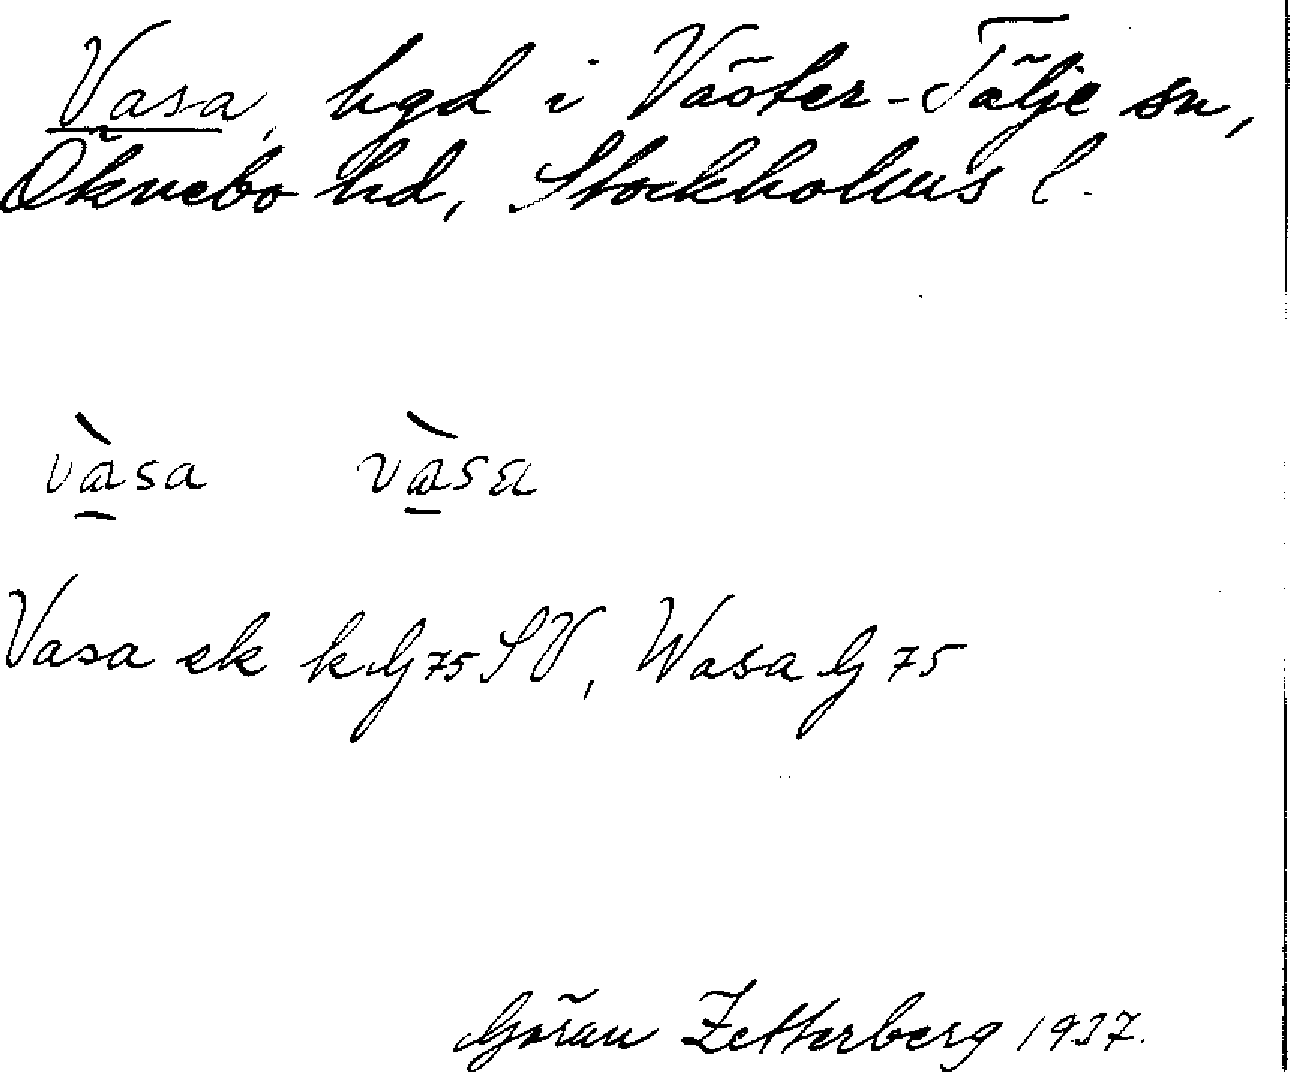 Vasa, hgd i Väster-Tälje sn,
Öknebo hd, Stockholms l.
vàsa vàsa
Vasa ek k G75 SV, Wasa G 75
Göran Zetterberg 1937.